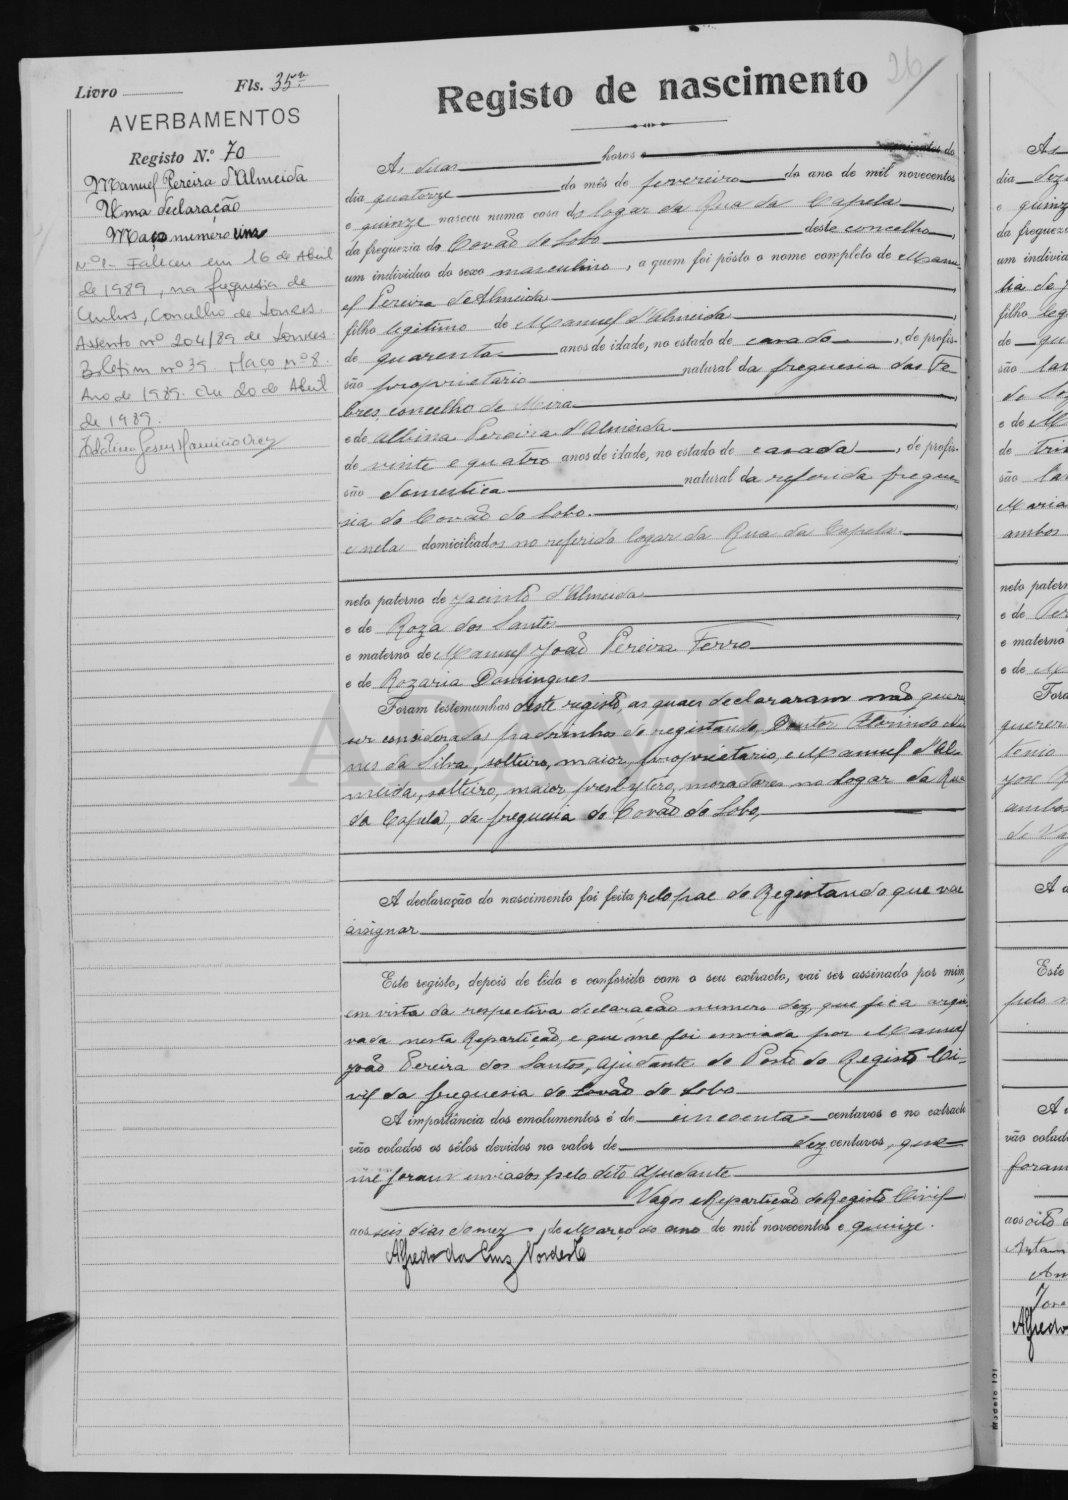 26
Livro Fls. 35v
Registo de nascimento
AVERBAMENTOS
Registo N.º 70
Manuel Pereira d'Almeida
Uma declaração
Maço numero um
Nº 1 - Faleceu em 16 de Abril
de 1989, na freguesia de
Concelho de Loures.
Assento nº 204/89 de Loures
Boletim nº 39. Maço nº 8.
Ano de 1989. Em 20 de Abril
de 1989.
Ás duas horas e minutos do
dia quatorze do mês de fevereiro do ano de mil novecentos
e quinze nasceu numa casa do logar da Rua da Capela,
da freguezia do Covão do Lobo deste concelho,
um individuo do sexo masculino, a quem foi pôsto o nome completo de Manu-
el Pereira de Almeida
filho legitimo de Manuel d'Almeida,
de quarenta anos de idade, no estado de casado, de profis-
são proprietario natural da freguesia das Fe-
bres, concelho de Mira
e de Albina Pereira d'Almeida
de vinte e quatro anos de idade, no estado de casada, de profis-
são domestica natural da referida fregue-
sia do Covão do Lobo.
e nela domiciliados no referido logar da Rua da Capela
neto paterno de Jacinto d'Almeida
e de Roza dos Santos
e materno de Manuel João Pereira Ferro
e de Rozaria Domingues
Foram testemunhas deste registo, as quaes declararam não querer
ser consideradas padrinhos do registando, Doutor Florindo Nu-
nes da Silva, solteiro, maior, proprietario, e Manuel d'Al-
meida, solteiro, maior, presbytero, moradores no logar da Rua
da Capela, da freguesia do Covão do Lobo,
A declaração do nascimento foi feita pelo pae do Registando que vae
assignar
Este registo, depois de lido e conferido com o seu extracto, vai ser assinado por mim,
em vista da respectiva declaração numero dez, que fica arqui-
vada nesta Repartição, e que me foi enviada por Manuel
João Pereira dos Santos, Ajudante do Posto do Registo Ci-
vil da freguesia do Covão do Lobo
A importância dos emolumentos é de cincoenta centavos e no extracto
vão colados os sêlos devidos no valor de dez centavos, que
me foram enviados pelo dito Ajudante
Vagos e Repartição do Registo Civil
aos seis dias do mez de Março do ano de mil novecentos e quinze.
Alfredo da Cruz Nordeste
Modelo 101